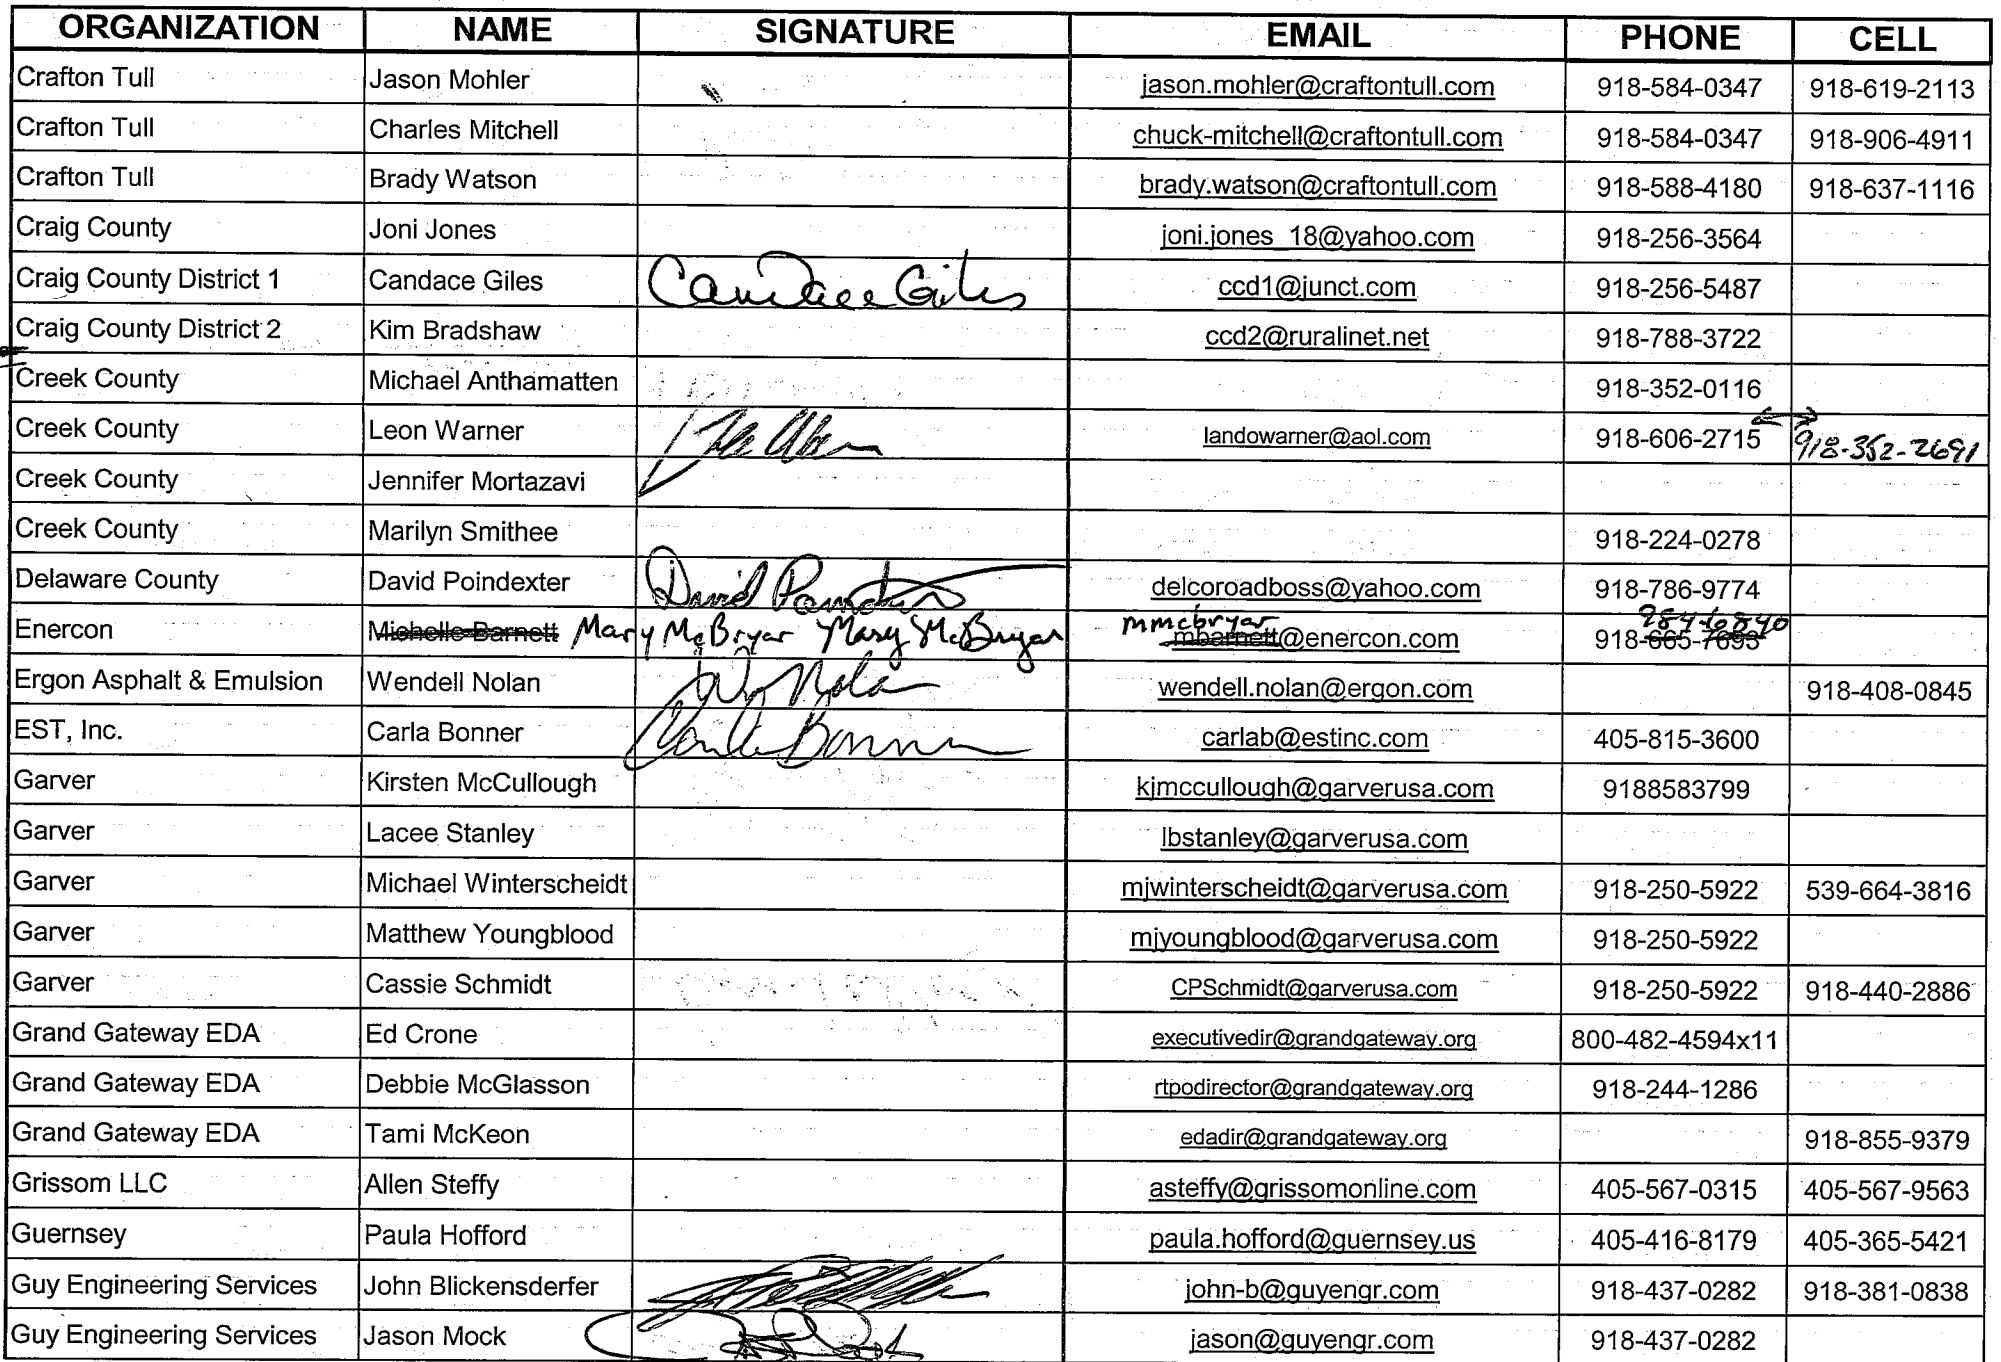 ORGANIZATION NAME SIGNATURE EMAIL PHONE CELL
Crafton Tull Jason Mohler jason.mohler@craftontull.com 918-584-0347 918-619-2113
Crafton Tull Charles Mitchell chuck-mitchell@craftontull.com 918-584-0347 918-906-4911
Crafton Tull Brady Watson brady.watson@craftontull.com 918-588-4180 918-637-1116
Craig County Joni Jones joni.jones_18@yahoo.com 918-256-3564
Craig County District 1 Candace Giles Candace Giles ccd1@junct.com 918-256-5487
Craig County District 2 Kim Bradshaw ccd2@ruralinet.net 918-788-3722
Creek County Michael Anthamatten 918-352-0116
Creek County Leon Warner landowarner@aol.com 918-606-2715 918-352-2691
Creek County Jennifer Mortazavi
Creek County Marilyn Smithee 918-224-0278
Delaware County David Poindexter David Poindexter delcoroadboss@yahoo.com 918-786-9774
Enercon Michelle Barnett Mary McBryar Mary McBryar mmcbryar mbarnett@enercon.com 284-6840 918-665-7693
Ergon Asphalt & Emulsion Wendell Nolan W Nolan wendell.nolan@ergon.com 918-408-0845
EST, Inc. Carla Bonner Carla Bonner carlab@estinc.com 405-815-3600
Garver Kirsten McCullough kjmccullough@garverusa.com 9188583799
Garver Lacee Stanley lbstanley@garverusa.com
Garver Michael Winterscheidt mjwinterscheidt@garverusa.com 918-250-5922 539-664-3816
Garver Matthew Youngblood mjyoungblood@garverusa.com 918-250-5922
Garver Cassie Schmidt CPSchmidt@garverusa.com 918-250-5922 918-440-2886
Grand Gateway EDA Ed Crone executivedir@grandgateway.org 800-482-4594x11
Grand Gateway EDA Debbie McGlasson rtpodirector@grandgateway.org 918-244-1286
Grand Gateway EDA Tami McKeon edadir@grandgateway.org 918-855-9379
Grissom LLC Allen Steffy asteffy@grissomonline.com 405-567-0315 405-567-9563
Guernsey Paula Hofford paula.hofford@guernsey.us 405-416-8179 405-365-5421
Guy Engineering Services John Blickensderfer john-b@guyengr.com 918-437-0282 918-381-0838
Guy Engineering Services Jason Mock jason@guyengr.com 918-437-0282